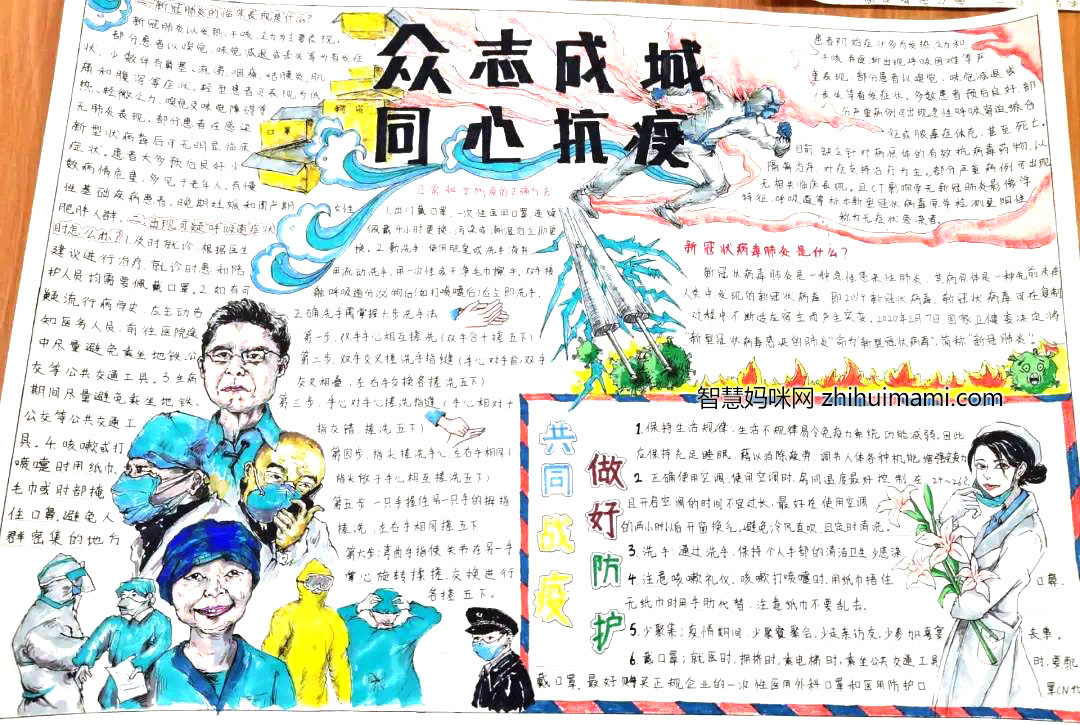 众志成城
同心抗疫
一、新冠肺炎的临床表现是什么?
新冠肺炎以发热、干咳、乏力为主要表现,
部分患者以嗅觉、味觉减退或丧失等为首发症
状,少数伴有鼻塞、流涕、咽痛、结膜炎、肌
痛和腹泻等症状。轻型患者可表现为低
热、轻微乏力、嗅觉及味觉障碍等,
无肺炎表现。部分患者在感染
新型状病毒后可无明显临床
症状。患者大多预后良好,少
数病情危重,多见于老年人、有慢
性基础疾病患者、晚期妊娠和围产期
女性
肥胖人群。二、出现可疑呼吸道症状
时怎么办?1.及时就诊,根据医生
建议进行治疗,就诊时患和陪
护人员均需要佩戴口罩。2.如有可
疑流行病学史,应主动告
知医务人员,前往医院途
中尽量避免乘坐地铁、公
交等公共交通工具。3.生病
期间尽量避免乘坐地铁、
公交等公共交通工
具。4.咳嗽或打
喷嚏时用纸巾、
毛巾或肘部掩
住口鼻,避免人
群密集的地方
口罩
1.出门戴口罩,一次性医用口罩连续
佩戴4小时更换,污染或潮湿后立即更
换。2.勤洗手:使用肥皂或洗手液并
用流动洗手,用一次性或干净毛巾擦手,双手接
触呼吸道分泌物后(如打喷嚏后)应立即洗手。
正确洗手需掌握六步洗手法
第一步,双手手心相互搓洗(双手合十搓五下)
第二步,双手交叉搓洗手指缝(手心对手背,双手
交叉相叠,左右手交换各搓洗五下)
第三步,手心对手心搓洗指缝(手心相对十
指交错,搓洗五下)
第四步,指尖搓洗手心,左右手相同(
指尖放于手心相互搓洗五下)
第五步,一只手握住另一只手的拇指
搓洗,左右手相同搓五下
第六步,弯曲手指使关节在另一手
掌心旋转揉搓,交换进行
各搓五下。
重表现,部分患者以嗅觉、味觉减退或
丧失等首发症状,多数患者预后良好,部
征或脓毒症休克,甚至死亡。
目前缺乏针对病原体的有效抗病毒药物,以
隔离治疗、对症支持治疗为主,部分严重病例可出现
新冠状病毒肺炎是什么?
新冠状病毒肺炎是一种急性感染性肺炎,其病原体是一种先前未在
人类中发现的新冠状病毒,即2019新冠状病毒。新冠状病毒可在复制
过程中不断适应宿主而产生突变。2020年2月7日国家卫健委决定,将
“新型冠状病毒感染的肺炎”命为“新型冠状病毒”,简称“新冠肺炎”。
智慧妈咪网 zhihuimami.com
共同战疫
做好防护
1.保持生活规律:生活不规律易令免疫力系统功能减弱,因此
应保持充足睡眠,藉以消除疲劳,调节人体各种机能,增强免疫力
2.正确使用空调:使用空调时,房间温度最好控制在
且开启空调的时间不宜过长,最好在使用空调
的两小时小后开窗换气,避免冷风直吹且定时清洗。
3.洗手:通过洗手,保持个人手部的清洁卫生少感染
4.注意咳嗽礼仪,咳嗽打喷嚏时,用纸巾捂住
口鼻,
无纸巾时用手肘代替,注意纸巾不要乱丢。
5.少聚集:疫情期间,少聚餐聚会,少走亲访友,少参加喜宴
丧事。
6.戴口罩:就医时,拥挤时,乘电梯时,乘坐公共交通工具
时,要配
戴口罩,最好购买正规企业的一次性医用外科口罩和医用防护口